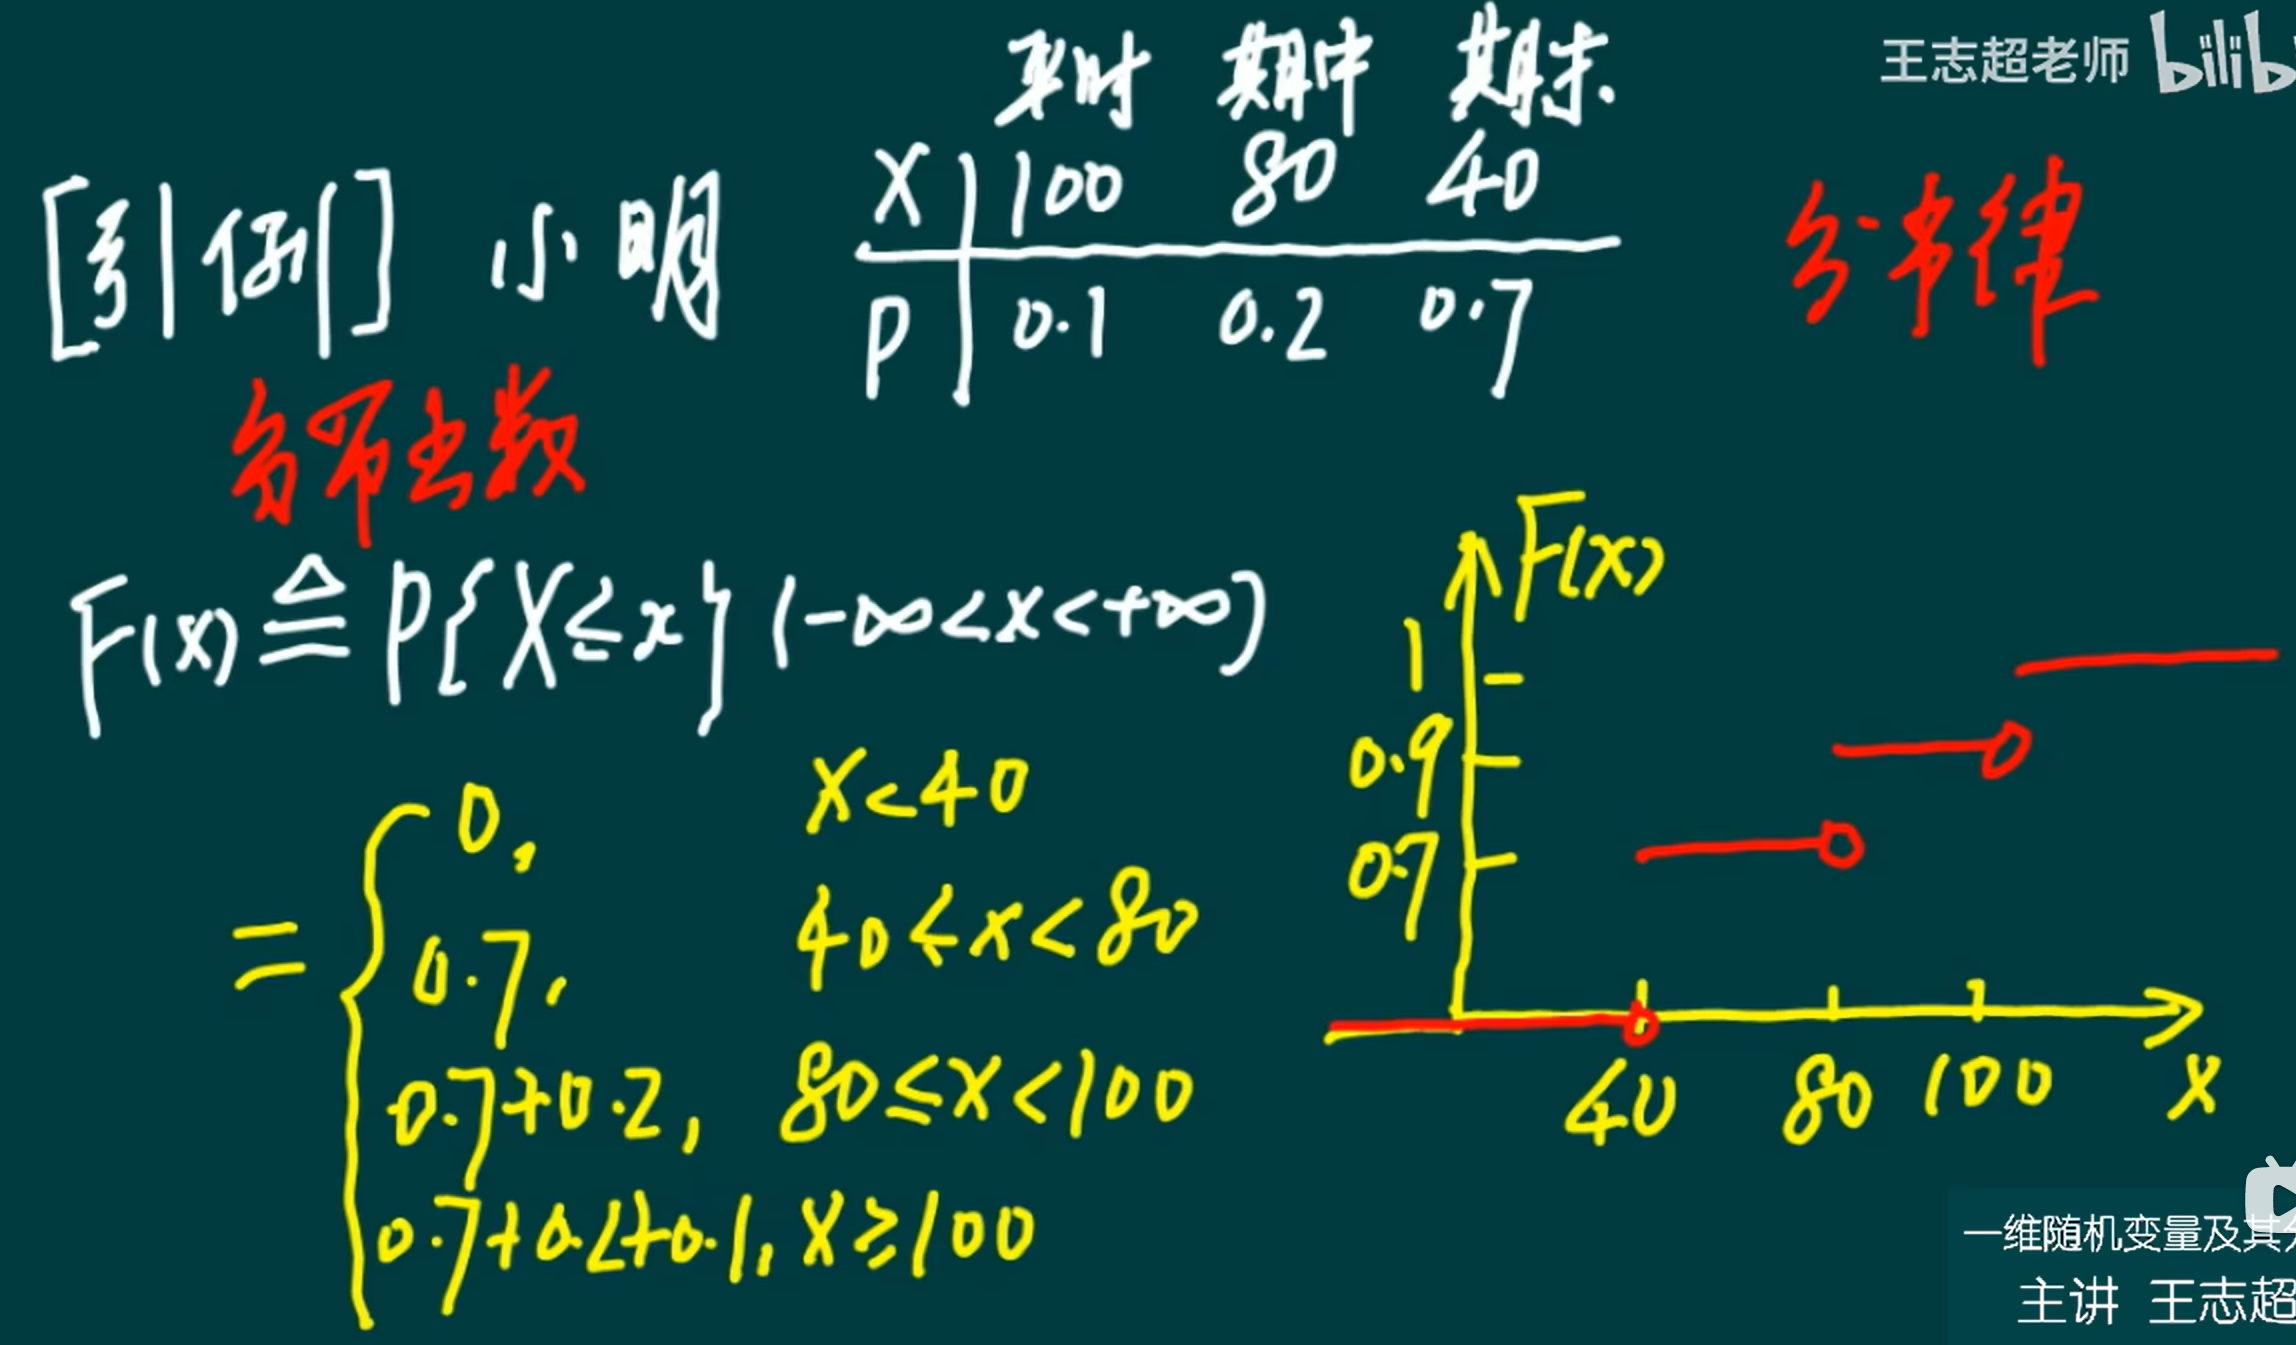 王志超老师 bilib
平时 期中 期末
[引例] 小明 X 100 80 40 分布律
P 0.1 0.2 0.7
分布函数
F(x) ≜ P{X≤x} (-∞<x<+∞)
= { 0, x<40
0.7, 40≤x<80
0.7+0.2, 80≤x<100
0.7+0.2+0.1, x≥100
F(x)
1
0.9
0.7
40 80 100 x
一维随机变量及其分
主讲 王志超